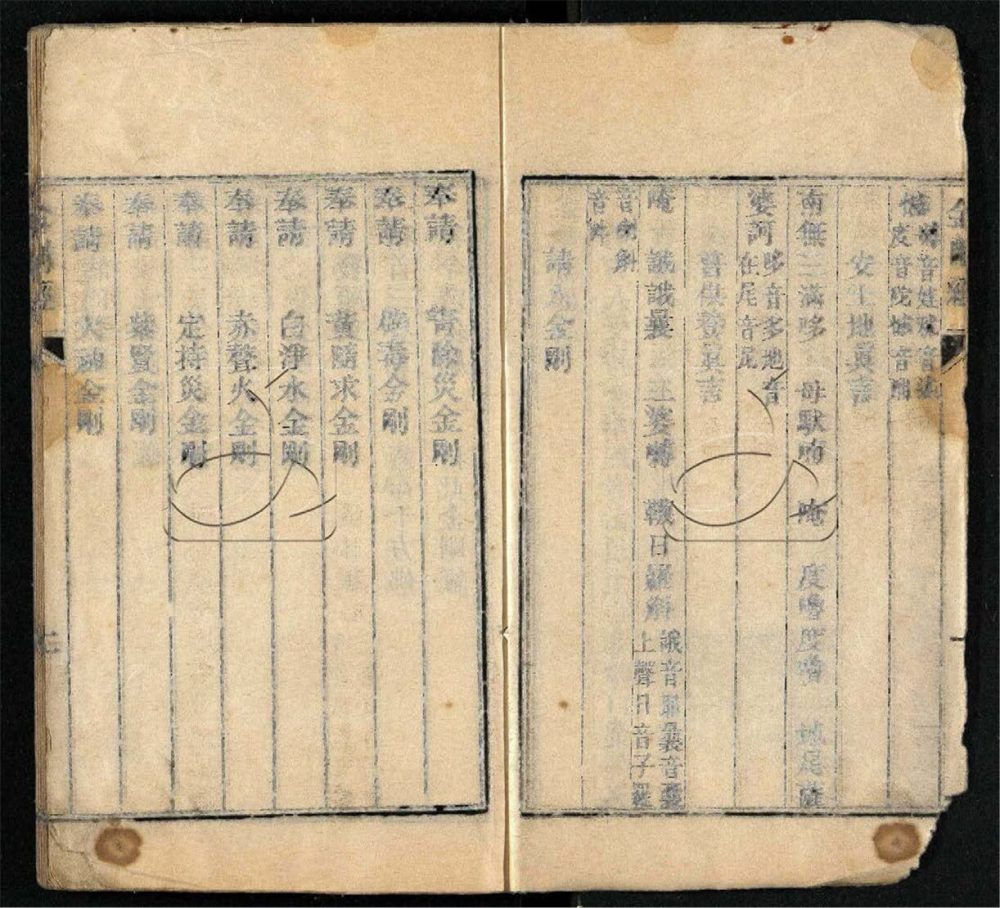 金剛經
安土地真言
南無三滿哆 母馱喃 唵 度嚕度嚕 地尾薩
婆訶 哆音多地音
在尾音尾
普供養真言
唵 誐誐曩 三婆嚩 韈日囉斛
誐音耶曩音曩
上聲日音子囉
請八金剛
奉請 青除災金剛
奉請 辟毒金剛
奉請 黃隨求金剛
奉請 白淨水金剛
奉請 赤聲火金剛
奉請 定持災金剛
奉請 紫賢金剛
奉請 大神金剛